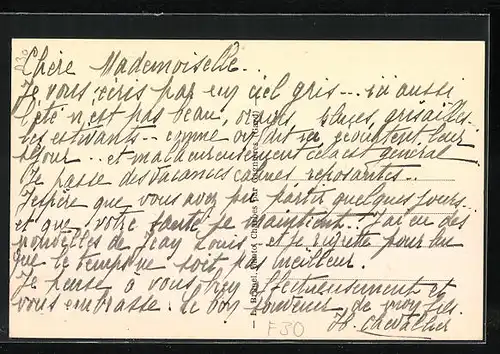 Chère Mademoiselle..
Je vous écris par un ciel gris... ici aussi
l'été n'est pas beau, orages, pluies, grisailles
les estivants - comme on dit ici écourtent leur
séjour... et malheureusement cela est général
Je passe des vacances calmes reposantes..
J'espère que vous avez pu partir quelques jours
et que votre santé se maintient. J'ai eu des
nouvelles de Jean Louis - et je regrette pour lui
que le temps ne soit pas meilleur.
Je pense à vous bien affectueusement et
vous embrasse. Le bon souvenir de mon fils.
H. Chevalier
F30